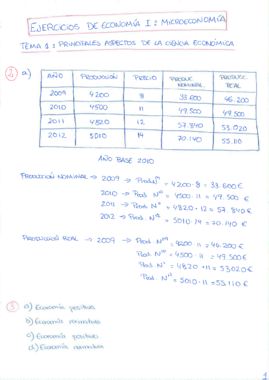 EJERCICIOS DE ECONOMÍA I: MICROECONOMÍA
TEMA 1: PRINCIPALES ASPECTOS DE LA CIENCIA ECONÓMICA
2) a)
AÑO PRODUCCIÓN PRECIO PRODUC. NOMINAL PRODUCC. REAL
2009 4200 8 33.600 46.200
2010 4500 11 49.500 49.500
2011 4820 12 57.840 53.020
2012 5010 14 70.140 55.110
AÑO BASE 2010
PRODUCCIÓN NOMINAL → 2009 → Prod. Nal = 4200·8 = 33.600€
2010 → Prod. Nal = 4500·11 = 49.500 €
2011 → Prod. Nal = 4820·12 = 57.840€
2012 → Prod. Nal = 5010·14 = 70.140 €
PRODUCCIÓN REAL → 2009 → Prod. Nal = 4200·11 = 46.200€
Prod. Nal = 4500·11 = 49.500€
Prod. Nal = 4820·11 = 53.020€
Prod. Nal = 5010·11 = 55.110€
3) a) Economía positiva
b) Economía normativa
c) Economía positiva
d) Economía normativa
1